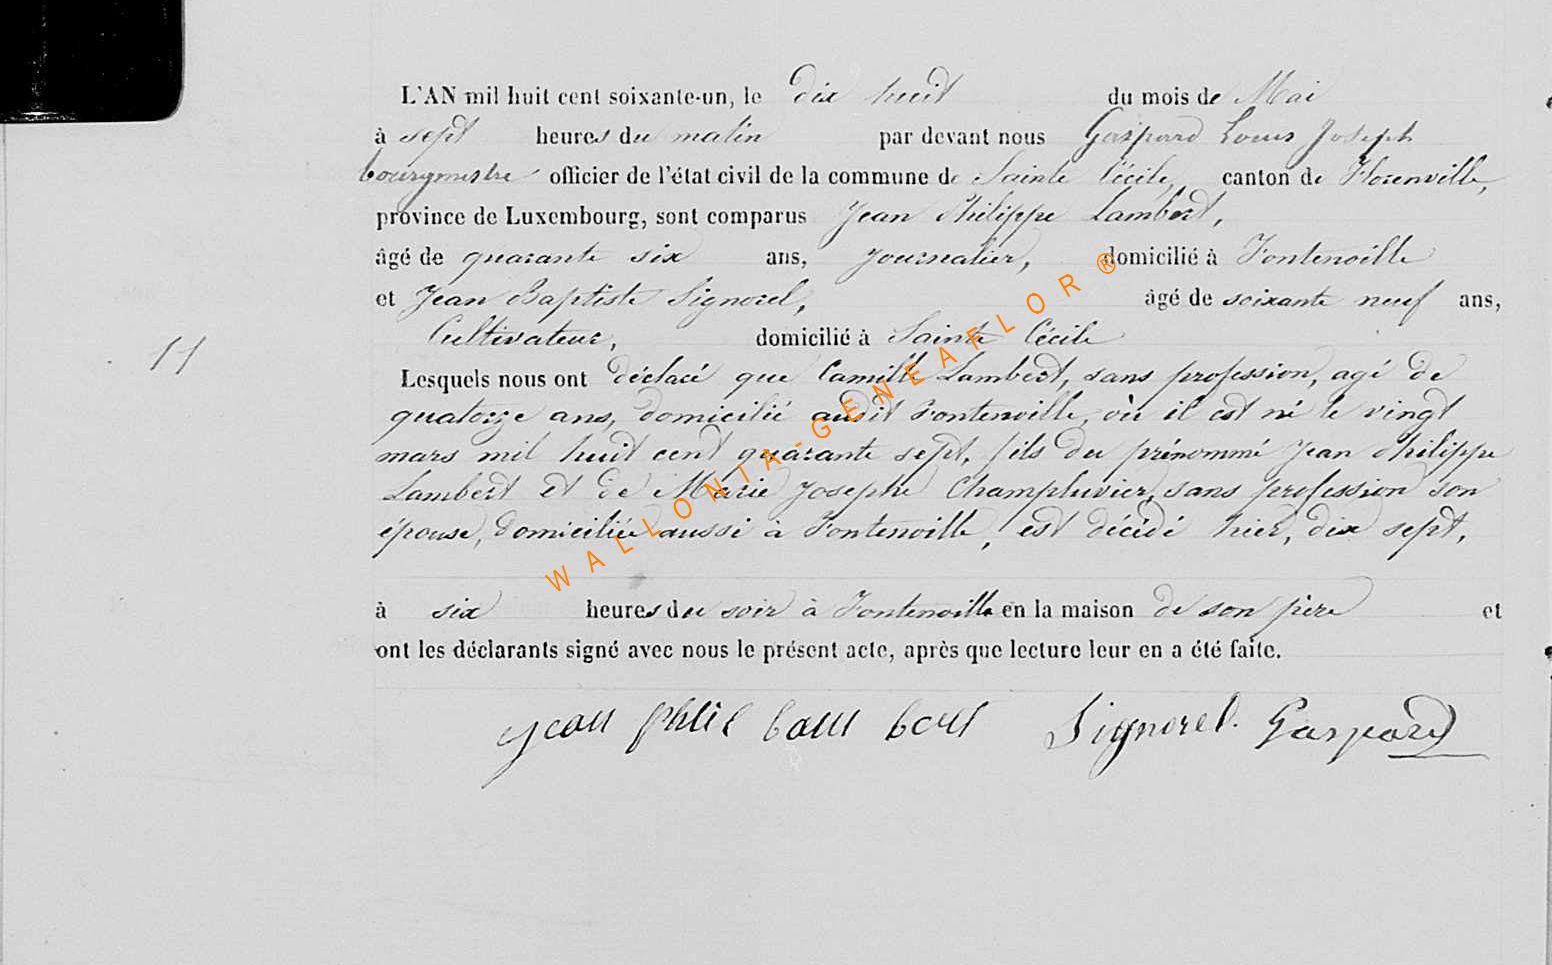 L'AN mil huit cent soixante-un, le dix huit du mois de Mai
à sept heures du matin par devant nous Gaspard Louis Joseph
bourgmestre officier de l'état civil de la commune de Sainte Cécile, canton de Florenville,
province de Luxembourg, sont comparus Jean Philippe Lambert,
âgé de quarante six ans, journalier, domicilié à Fontenoille
et Jean Baptiste Signorel, âgé de soixante neuf ans,
Cultivateur, domicilié à Sainte Cécile
11
Lesquels nous ont déclaré que Camille Lambert, sans profession, agé de
quatorze ans, domicilié audit Fontenoille, où il est né le vingt
mars mil huit cent quarante sept, fils du prénommé Jean Philippe
Lambert et de Marie Josephe Champluvier, sans profession son
épouse, domiciliée aussi à Fontenoille, est décédé hier, dix sept,
à six heures du soir à Fontenoille en la maison de son père et
ont les déclarants signé avec nous le présent acte, après que lecture leur en a été faite.
jean Signorel. Gaspard
WALLONIA-GENEAFLOR ®